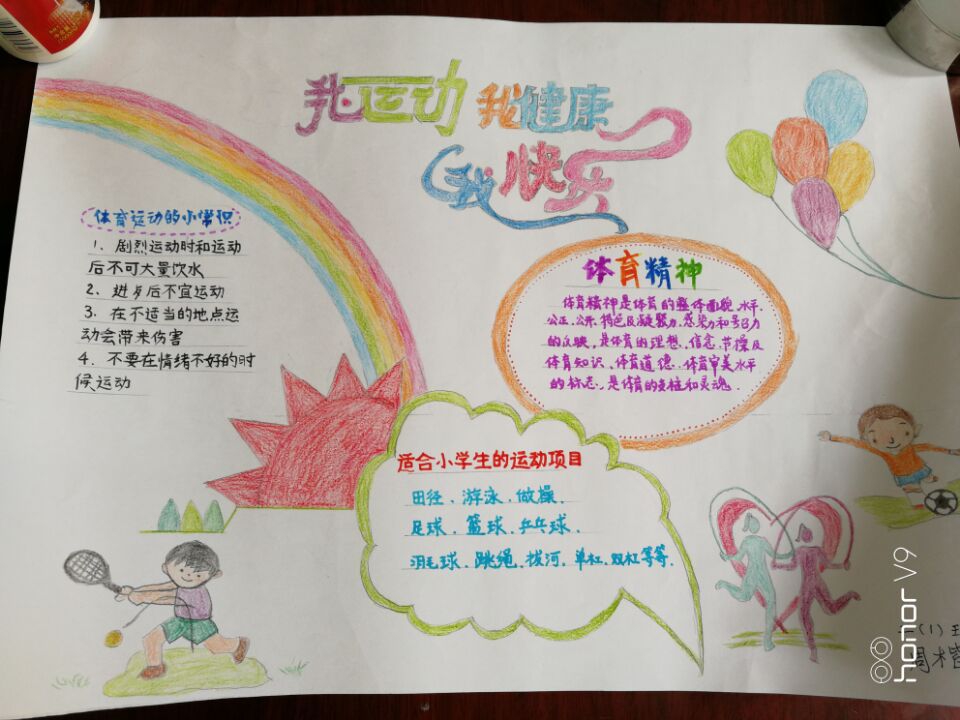 我运动 我健康
我快乐
体育运动的小常识
1、剧烈运动时和运动
后不可大量饮水
2、进食后不宜运动
3、在不适当的地点运
动会带来伤害
4、不要在情绪不好的时
候运动
体育精神
体育精神是体育的整体面貌、水平、
公正、公开、特色及凝聚力、感染力和号召力
的反映，是体育的理想、信念、节操及
体育知识、体育道德、体育审美水平
的标志，是体育的支柱和灵魂.
适合小学生的运动项目
田径、游泳、做操、
足球、篮球、乒乓球、
羽毛球、跳绳、拔河、单杠、双杠等等.
(1)
周
honor V9